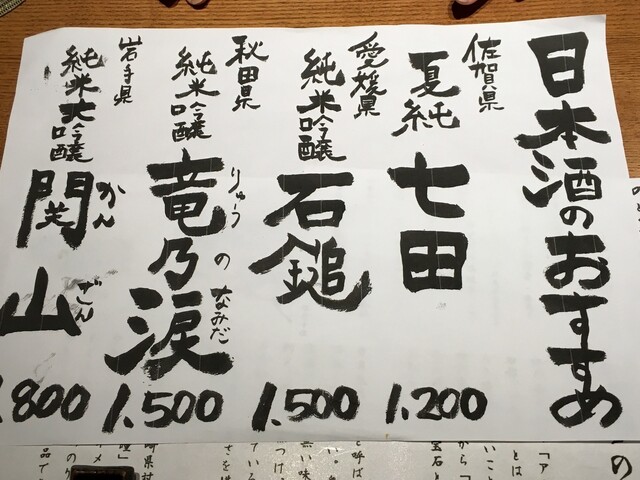 日本酒のおすすめ
佐賀県
夏純
七田
1.200
愛媛県
純米吟醸
石鎚
1.500
秋田県
純米吟醸
竜乃涙
りゅうのなみだ
1.500
岩手県
純米大吟醸
関山
かんざん
.800